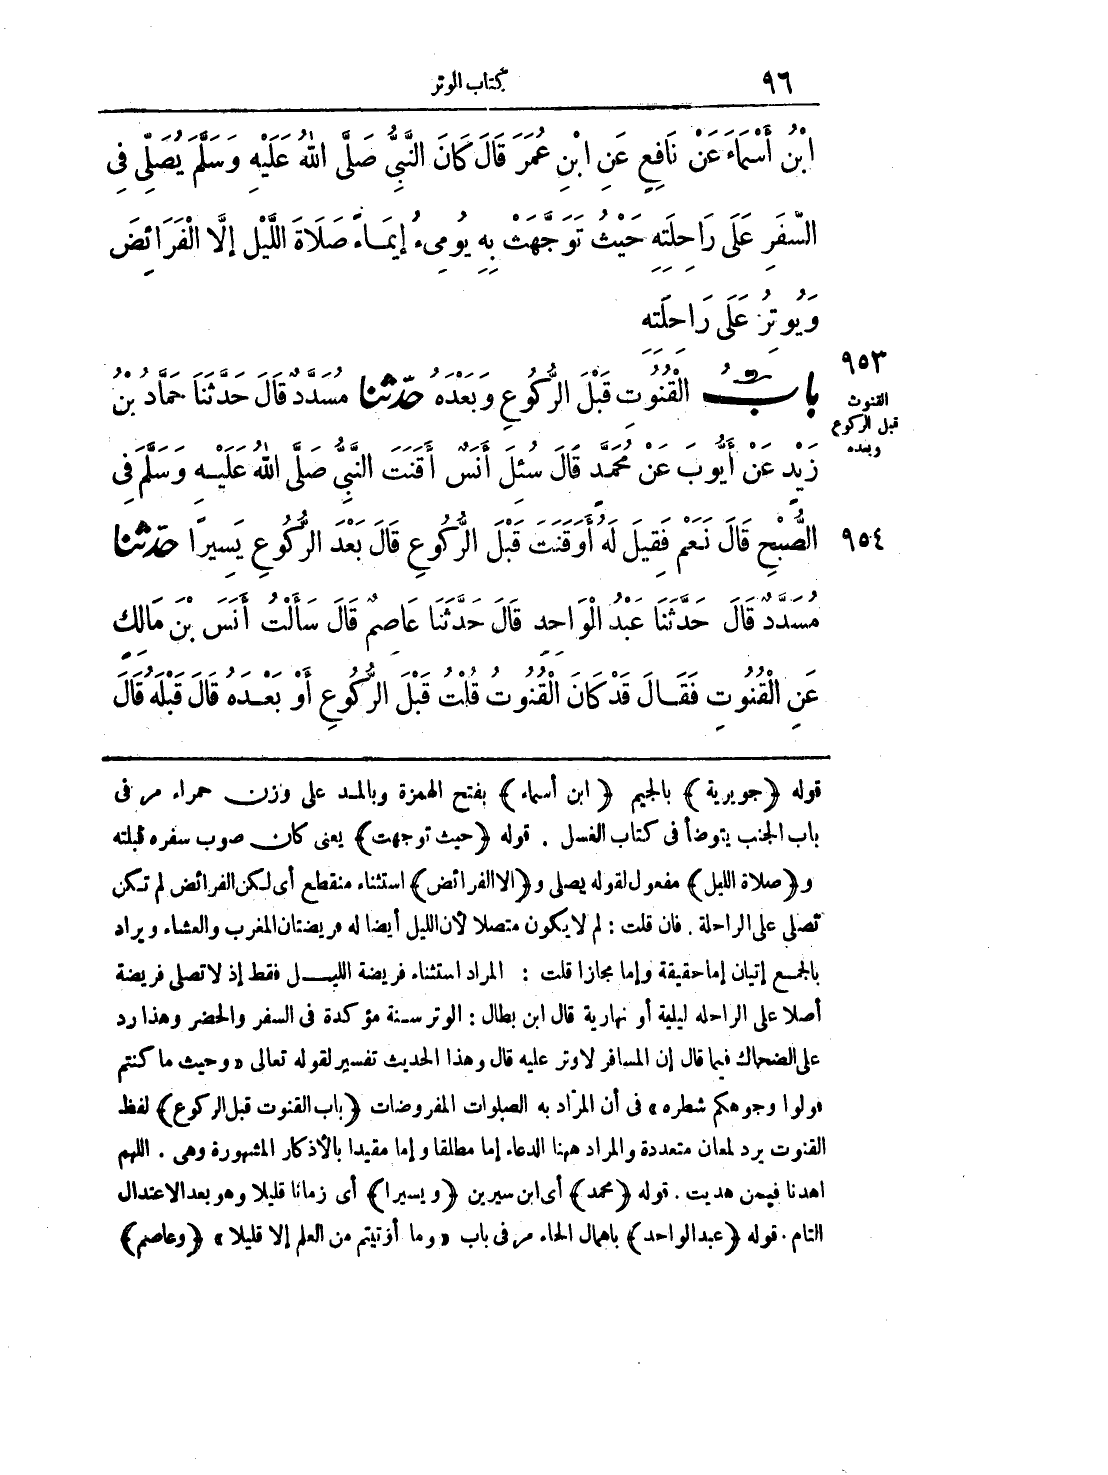 ٩٦
كتاب الوتر
ابْنُ أَسْمَاءَ عَنْ نَافِعٍ عَنِ ابْنِ عُمَرَ قَالَ كَانَ النَّبِيُّ صَلَّى اللهُ عَلَيْهِ وَسَلَّمَ يُصَلِّي فِي
السَّفَرِ عَلَى رَاحِلَتِهِ حَيْثُ تَوَجَّهَتْ بِهِ يُومِىءُ إِيمَاءً صَلَاةَ اللَّيْلِ إِلَّا الْفَرَائِضَ
وَيُوتِرُ عَلَى رَاحِلَتِهِ
٩٥٣
القنوت
قبل الركوع
وبعده
بَابُ الْقُنُوتِ قَبْلَ الرُّكُوعِ وَبَعْدَهُ حَدَّثَنَا مُسَدَّدٌ قَالَ حَدَّثَنَا حَمَّادُ بْنُ
زَيْدٍ عَنْ أَيُّوبَ عَنْ مُحَمَّدٍ قَالَ سُئِلَ أَنَسٌ أَقَنَتَ النَّبِيُّ صَلَّى اللهُ عَلَيْهِ وَسَلَّمَ فِي
الصُّبْحِ قَالَ نَعَمْ فَقِيلَ لَهُ أَوَقَنَتَ قَبْلَ الرُّكُوعِ قَالَ بَعْدَ الرُّكُوعِ يَسِيرًا حَدَّثَنَا
٩٥٤
مُسَدَّدٌ قَالَ حَدَّثَنَا عَبْدُ الْوَاحِدِ قَالَ حَدَّثَنَا عَاصِمٌ قَالَ سَأَلْتُ أَنَسَ بْنَ مَالِكٍ
عَنِ الْقُنُوتِ فَقَالَ قَدْ كَانَ الْقُنُوتُ قُلْتُ قَبْلَ الرُّكُوعِ أَوْ بَعْدَهُ قَالَ قَبْلَهُ قَالَ
قوله ﴿جويرية﴾ بالجيم ﴿ابن أسماء﴾ بفتح الهمزة وبالمد على وزن حمراء مر فى
باب الجنب يتوضأ فى كتاب الغسل . قوله ﴿حيث توجهت﴾ يعنى كان صوب سفره قبلته
و﴿صلاة الليل﴾ مفعول لقوله يصلى و﴿الا الفرائض﴾ استثناء منقطع أى لكن الفرائض لم تكن
تصلى على الراحلة . فان قلت : لم لا يكون متصلا لأن الليل أيضا له فريضتان المغرب والعشاء ويراد
بالجمع إتيان إما حقيقة وإما مجازا قلت : المراد استثناء فريضة الليل فقط إذ لا تصلى فريضة
أصلا على الراحله ليلية أو نهارية قال ابن بطال : الوتر سنة مؤكدة فى السفر والحضر وهذا رد
على الضحاك فيما قال إن المسافر لا وتر عليه قال وهذا الحديث تفسير لقوله تعالى «وحيث ما كنتم
فولوا وجوهكم شطره» فى أن المراد به الصلوات المفروضات ﴿باب القنوت قبل الركوع﴾ لفظ
القنوت يرد لمعان متعددة والمراد ههنا الدعاء إما مطلقا وإما مقيدا بالأذكار المشهورة وهى . اللهم
اهدنا فيمن هديت . قوله ﴿محمد﴾ أى ابن سيرين ﴿ويسيرا﴾ أى زمانا قليلا وهو بعد الاعتدال
التام . قوله ﴿عبد الواحد﴾ باهمال الحاء مر فى باب «وما أوتيتم من العلم إلا قليلا» ﴿وعاصم﴾